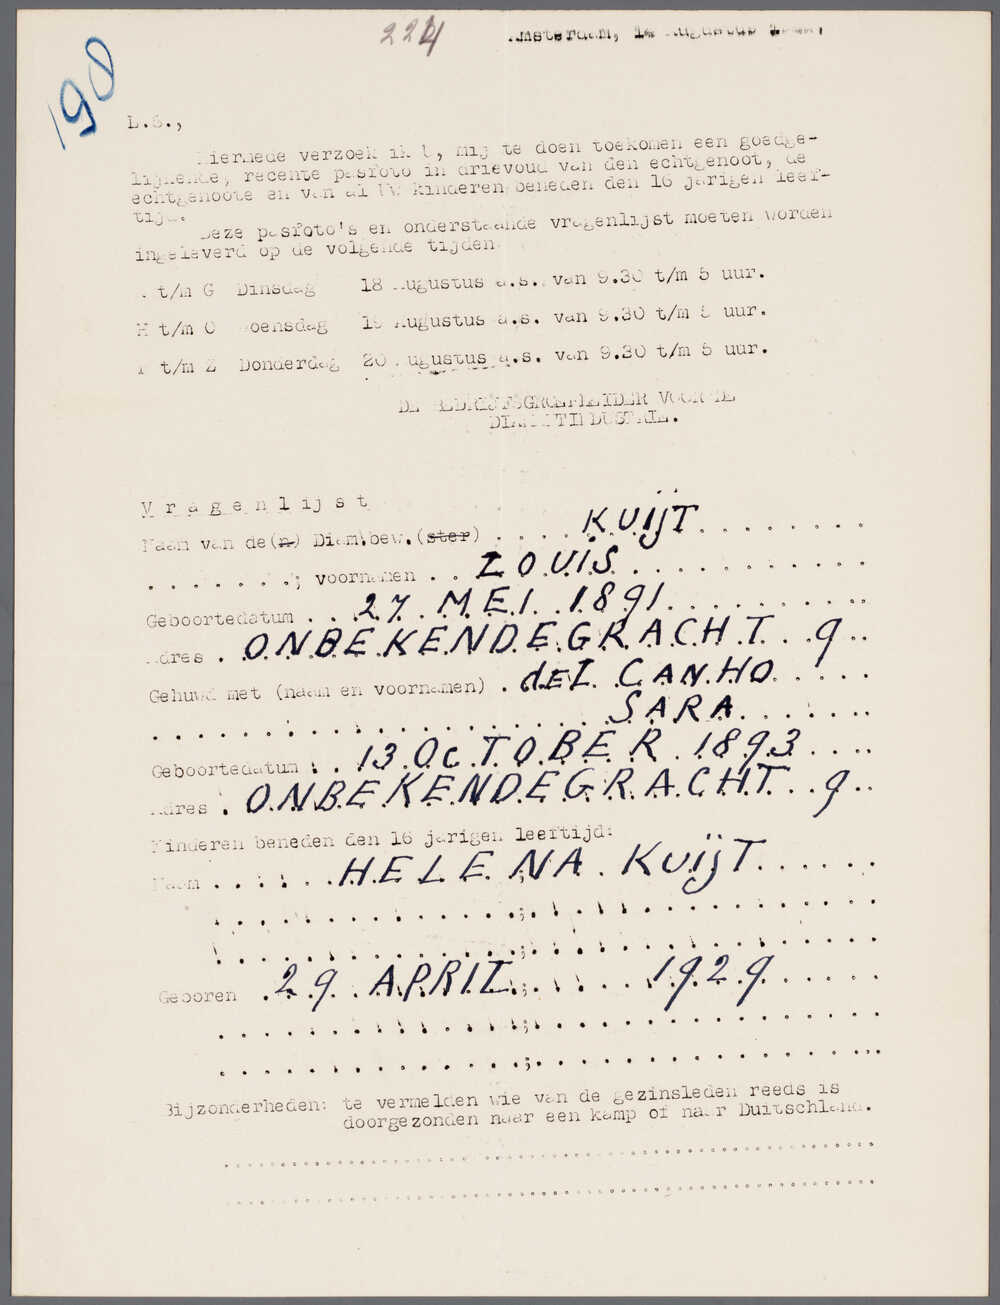 2224
Amsterdam, 14 Augustus
190
L.S.,
Hiermede verzoek ik U, mij te doen toekomen een goedge-
lijkende, recente pasfoto in drievoud van den echtgenoot, de
echtgenoote en van al Uw kinderen beneden den 16 jarigen leef-
tijd.
Deze pasfoto's en onderstaande vragenlijst moeten worden
ingeleverd op de volgende tijden
t/m G Dinsdag 18 Augustus a.s. van 9.30 t/m 5 uur.
H t/m O Woensdag 19 Augustus a.s. van 9.30 t/m 5 uur.
P t/m Z Donderdag 20 Augustus a.s. van 9.30 t/m 5 uur.
DE BEDRIJFSGROEPLEIDER VOOR DE
DIAMANTINDUSTRIE.
Vragenlijst
Naam van de(n) Diam.bew.(ster) .... KUIJT ........
.......; voornamen .. LOUIS ...........
Geboortedatum ... 27 MEI 1891 .........
Adres . ONBEKENDEGRACHT .. 9 ..
Gehuwd met (naam en voornamen) . del CANHO .....
SARA ......
Geboortedatum : . 13 OCTOBER 1893 ....
Adres . ONBEKENDEGRACHT .. 9 ..
Kinderen beneden den 16 jarigen leeftijd:
Naam ...... HELENA KUIJT ......
Geboren . 29 APRIL ; .... 1929 .....
Bijzonderheden: te vermelden wie van de gezinsleden reeds is
doorgezonden naar een kamp of naar Duitschland.